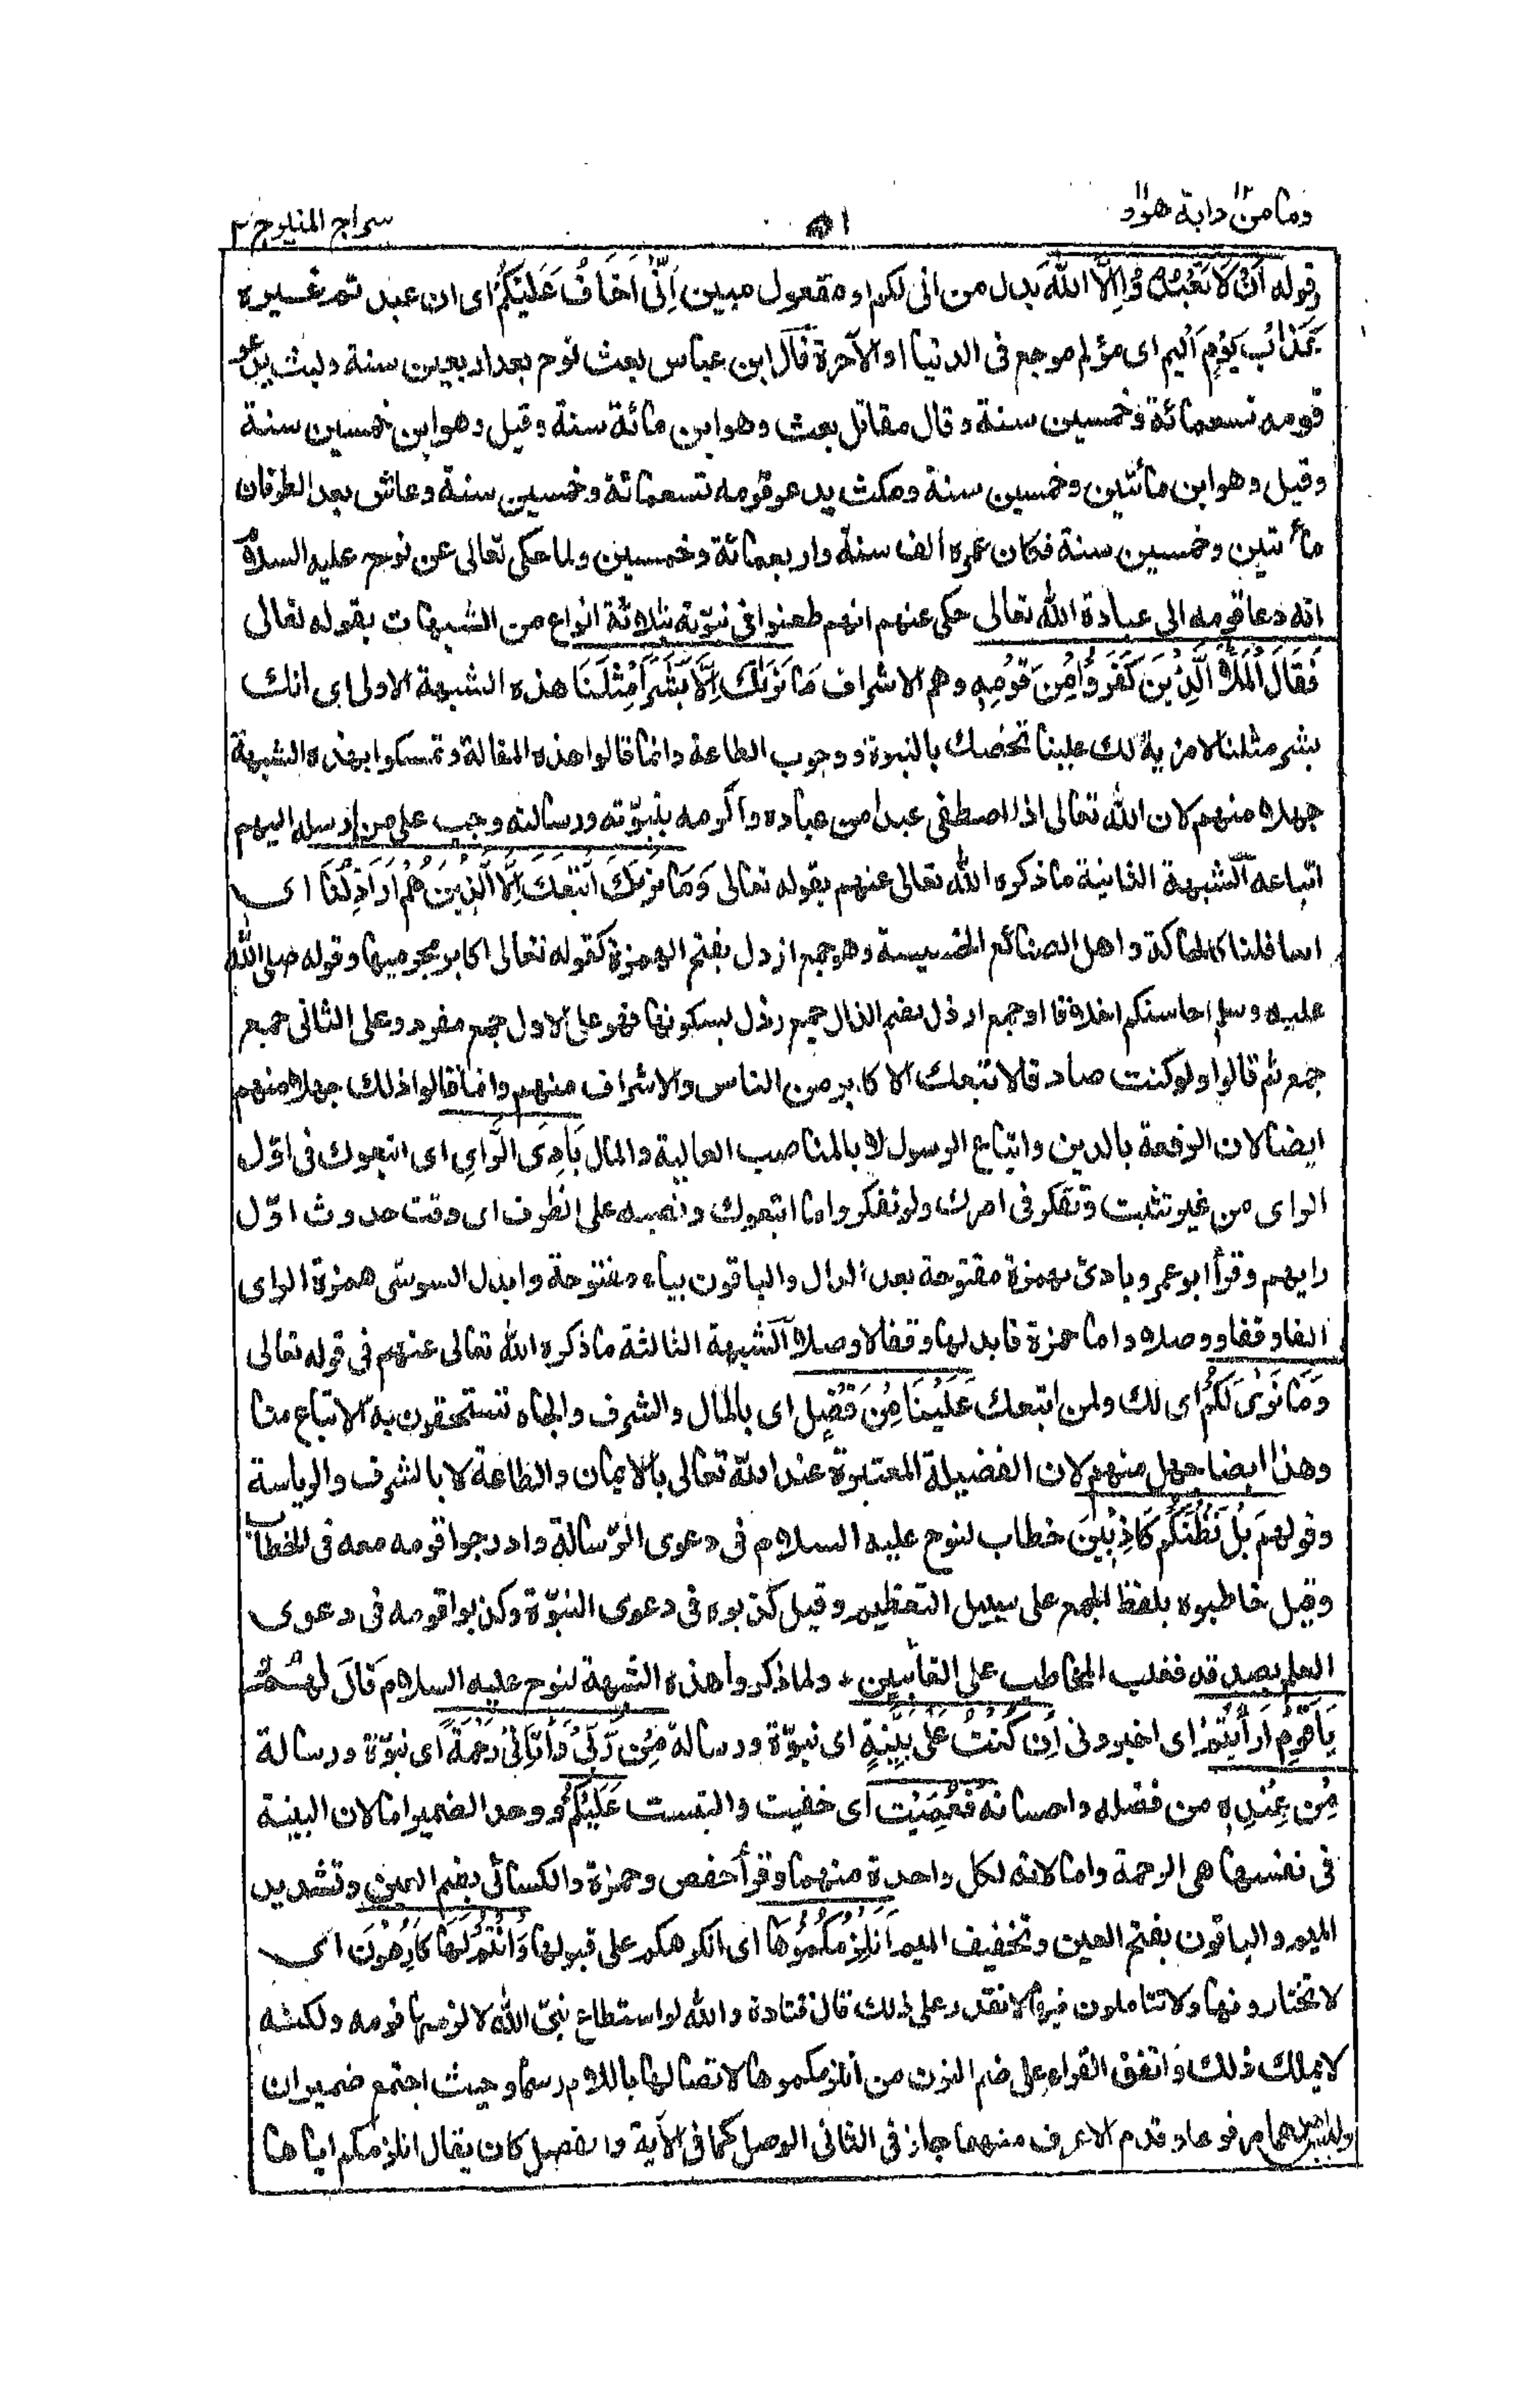 وما من دابة ١٢ هود ١١
٥١
سراج المنير ج ٢
وقوله اَنْ لَا تَعْبُدُوْا اِلَّا اللّٰهَ بدل من انى لكم او مفعول مبين اِنِّىْ اَخَافُ عَلَيْكُمْ اى ان عبدتم غيره
عَذَابَ يَوْمٍ اَلِيْمٍ اى مؤلم موجع فى الدنيا او الآخرة قال ابن عباس بعث نوح بعد اربعين سنة ولبث يدعو
قومه تسعمائة وخمسين سنة وقال مقاتل بعث وهو ابن مائة سنة وقيل وهو ابن خمسين سنة
وقيل وهو ابن مائتين وخمسين سنة ومكث يدعو قومه تسعمائة وخمسين سنة وعاش بعد الطوفان
مائتين وخمسين سنة فكان عمره الف سنة واربعمائة وخمسين ولما حكى تعالى عن نوح عليه السلام
انه دعا قومه الى عبادة الله تعالى حكى عنهم انهم طعنوا فى نبوّته بثلاثة انواع من الشبهات بقوله تعالى
فَقَالَ الْمَلَاُ الَّذِيْنَ كَفَرُوْا مِنْ قَوْمِهٖ وهم الاشراف مَا نَرٰىكَ اِلَّا بَشَرًا مِّثْلَنَا هذه الشبهة الاولى اى انك
بشر مثلنا لا مزية لك علينا تخصك بالنبوة ووجوب الطاعة وانما قالوا هذه المقالة وتمسكوا بهذه الشبهة
جهلا منهم لان الله تعالى اذا اصطفى عبدا من عباده واكرمه بنبوّته ورسالته وجب على من ارسله اليهم
اتباعه الشبهة الثانية ما ذكره الله تعالى عنهم بقوله تعالى وَمَا نَرٰىكَ اتَّبَعَكَ اِلَّا الَّذِيْنَ هُمْ اَرَاذِلُنَا اى
اسافلنا كالحاكة واهل الصنائع الخسيسة وهو جمع ارذل بفتح الهمزة كقوله تعالى اكابر مجرميها وقوله صلى الله
عليه وسلم احاسنكم اخلاقا او جمع ارذل بضم الذال جمع رذل بسكونها فهو على الاول جمع مفرد وعلى الثانى جمع
جمع ثم قالوا ولو كنت صادقا لاتبعك الاكابر من الناس والاشراف منهم وانما قالوا ذلك جهلا منهم
ايضا لان الرفعة بالدين واتباع الرسول لا بالمناصب العالية والمال بَادِىَ الرَّاىِ اى اتبعوك فى اوّل
الراى من غير تثبت وتفكر فى امرك ولو تفكروا ما اتبعوك ونصبه على الظرف اى وقت حدوث اوّل
رايهم وقرأ ابو عمرو بادئ بهمزة مفتوحة بعد الدال والباقون بياء مفتوحة وابدل السوسى همزة الراى
الفا وقفا ووصلا واما حمزة فابدلها وقفا لا وصلا الشبهة الثالثة ما ذكره الله تعالى عنهم فى قوله تعالى
وَمَا نَرٰى لَكُمْ اى لك ولمن اتبعك عَلَيْنَا مِنْ فَضْلٍ اى بالمال والشرف والجاه تستحقون به الاتباع منا
وهذا ايضا جهل منهم لان الفضيلة المعتبرة عند الله تعالى بالايمان والطاعة لا بالشرف والرياسة
وقولهم بَلْ نَظُنُّكُمْ كَاذِبِيْنَ خطاب لنوح عليه السلام فى دعوى الرّسالة وادرجوا قومه معه فى الخطاب
وقيل خاطبوه بلفظ الجمع على سبيل التعظيم وقيل كذبوه فى دعوى النبوّة وكذبوا قومه فى دعوى
العلم بصدقه فغلب المخاطب على الغائبين ٭ ولما ذكروا هذه الشبهة لنوح عليه السلام قَالَ لهم
يَا قَوْمِ اَرَاَيْتُمْ اى اخبرونى اِنْ كُنْتُ عَلٰى بَيِّنَةٍ اى نبوّة ورسالة مِّنْ رَّبِّىْ وَاٰتَانِىْ رَحْمَةً اى نبوّة ورسالة
مِّنْ عِنْدِهٖ من فضله واحسانه فَعُمِّيَتْ اى خفيت والتبست عَلَيْكُمْ ووحد الضمير اما لان البينة
فى نفسها هى الرحمة واما لانه لكل واحدة منهما وقرأ حفص وحمزة والكسائى بضم العين وتشديد
الميم والباقون بفتح العين وتخفيف الميم اَنُلْزِمُكُمُوْهَا اى انكرهكم على قبولها وَاَنْتُمْ لَهَا كَارِهُوْنَ اى
لا تختارونها ولا تتاملون فيها لا نقدر على ذلك قال قتادة والله لو استطاع نبىّ الله لالزمها قومه ولكنه
لا يملك ذلك واتفق القراء على ضم النون من انلزمكموها لاتصالها باللام رسما وحيث اجتمع ضميران
وليس احدهما مرفوعا وقدم الاعرف منهما جاز فى الثانى الوصل كما فى الآية والفصل كان يقال انلزمكم اياها